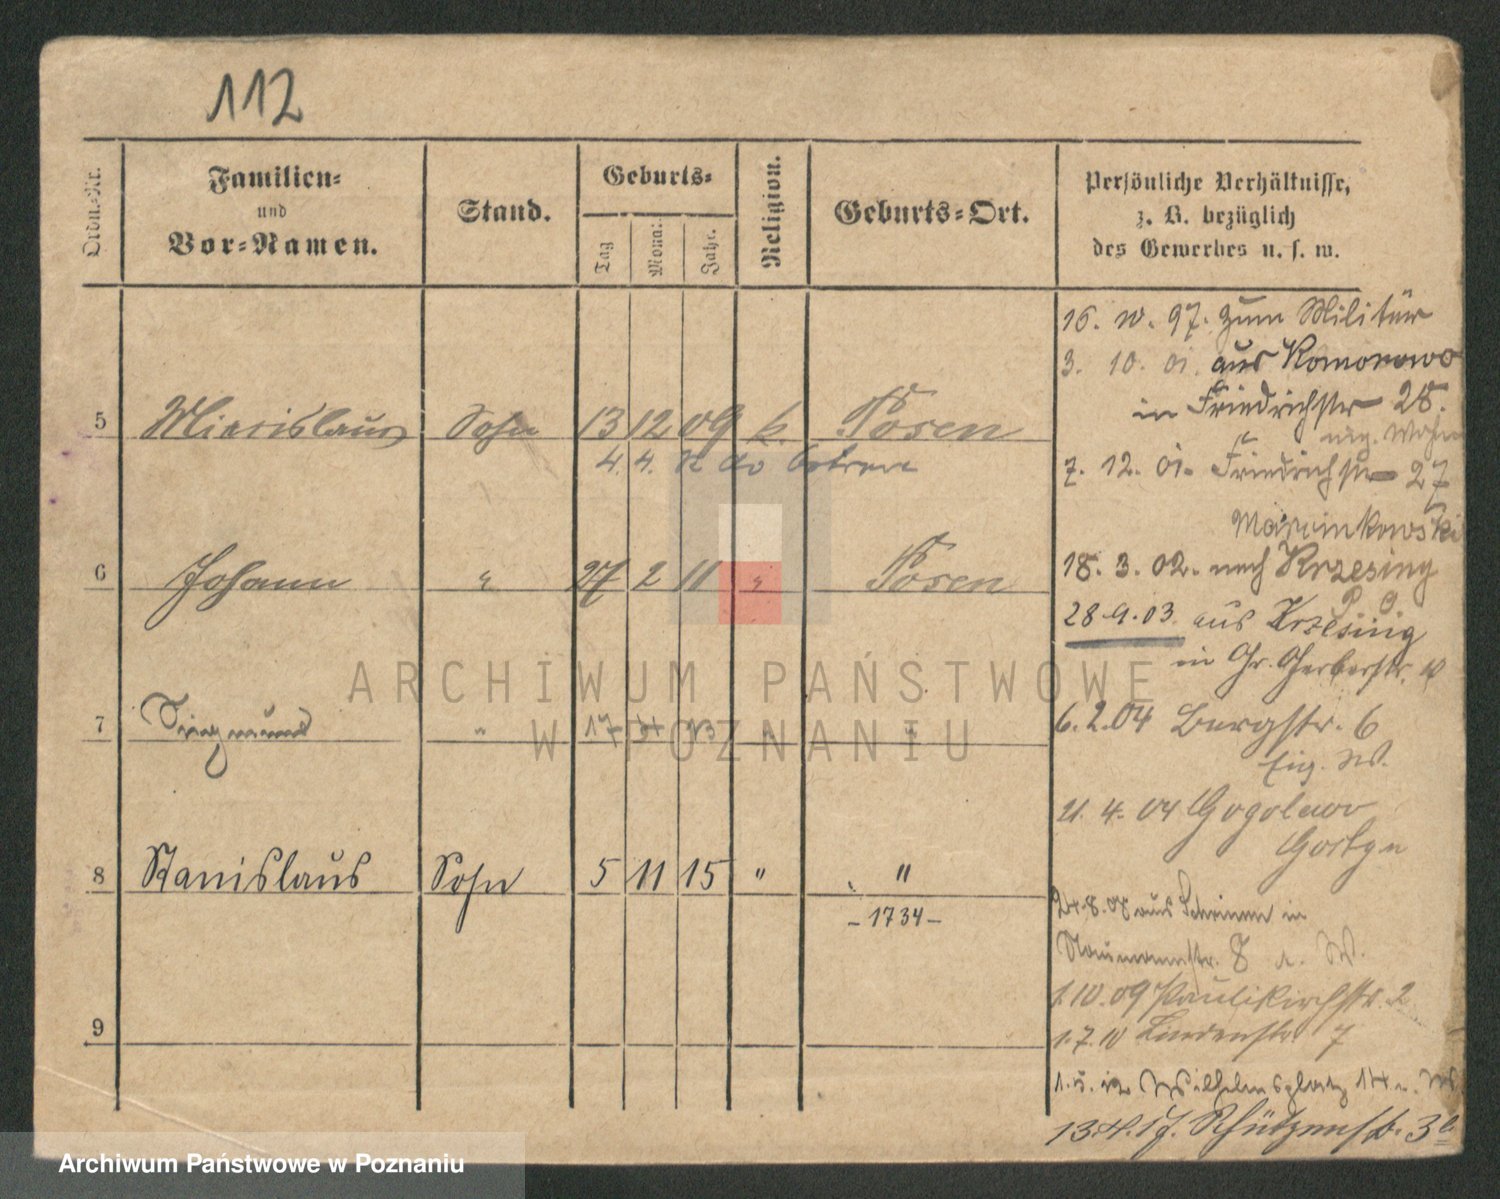 112
Ordn.-Nr.
Familien-
und
Vor-Namen.
Stand.
Geburts-
Tag
Mona:
Jahr.
Religion.
Geburts-Ort.
Persönliche Verhältnisse,
z. B. bezüglich
des Gewerbes u. s. w.
5 Miecislaus Sohn 13 12 09 k. Posen
4. 4. 12
6 Johann " 27 2 11 " Posen
7 Siegmund " 17 13 " "
8 Stanislaus Sohn 5 11 15 " "
- 1734 -
9
16. 10. 97. zum Militär
3. 10. 01. aus Komorowo
in Friedrichstr 28.
7. 12. 01. Friedrichstr 27
Marcinkowski
18. 3. 02. nach Krzesing
P. O.
28.9.03. aus Krzesing
in Gr. Gerberstr.
6.2.04 Bergstr. 6
Eig. W.
11. 4. 04 Gogolewo
Gostyn
24.8.08 aus Schrimm in
Naumannstr. 8 W.
1.10.09 Paulikirchstr. 2
1.7.10 Lindenstr 7
1.5.12 Wilhelmsplatz 14
13.4.17. Schützenstr. 3
ARCHIWUM PAŃSTWOWE
W POZNANIU
Archiwum Państwowe w Poznaniu